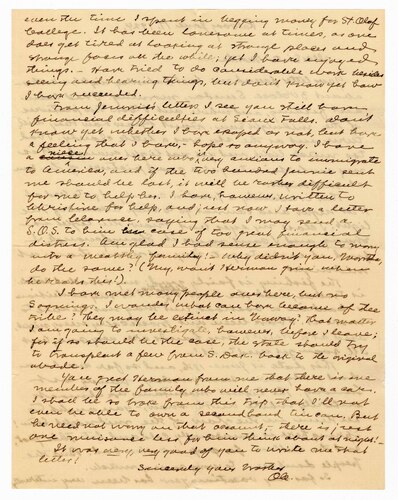 even the time I spent in begging money for St. Olaf
College. It has been lonesome at times, as one
does get tired at looking at strange places and
strange faces all the while; yet I have enjoyed
things. – Have tried to do considerable work besides
seeing and hearing things, but don't know yet how
I have succeeded.
From Jennie's letter I see you still have
financial difficulties at Sioux Falls. Don't
know yet whether I have escaped or not, but have
a feeling that I have, hope so anyway. I have
a niece over here who is very anxious to immigrate
to America, and if the two hundred Jennie sent
me should be lost, it will be rather difficult
for me to help her. I have, however, written to
Christine for help, and just now I have a letter
from Clarence, saying that I may send a
S.O.S. to him in case of too great financial
distress. Am glad I had sense enough to marry
into a wealthy family! – Why didn't you,
do the same? (My, won't Herman grin when
he reads this!).
I have met many people over here, but no
I wonder what can have become of the
tribe? They may be extinct in Norway. That matter
I am going to investigate, however, before I leave;
for if so should be the case, the state should try
to transplant a few from S. Dak. back to the original
abode.
You greet Herman from me that there is one
member of the family who will never have a car.
I shall be so broke from this trip that I'll not
even be able to own a secondhand tin can. But
he need not worry on that account, there is just
one nuisance less for him to think about at night! –
It was very, very good of you to write me that
letter!
Sincerely your brother
Ole